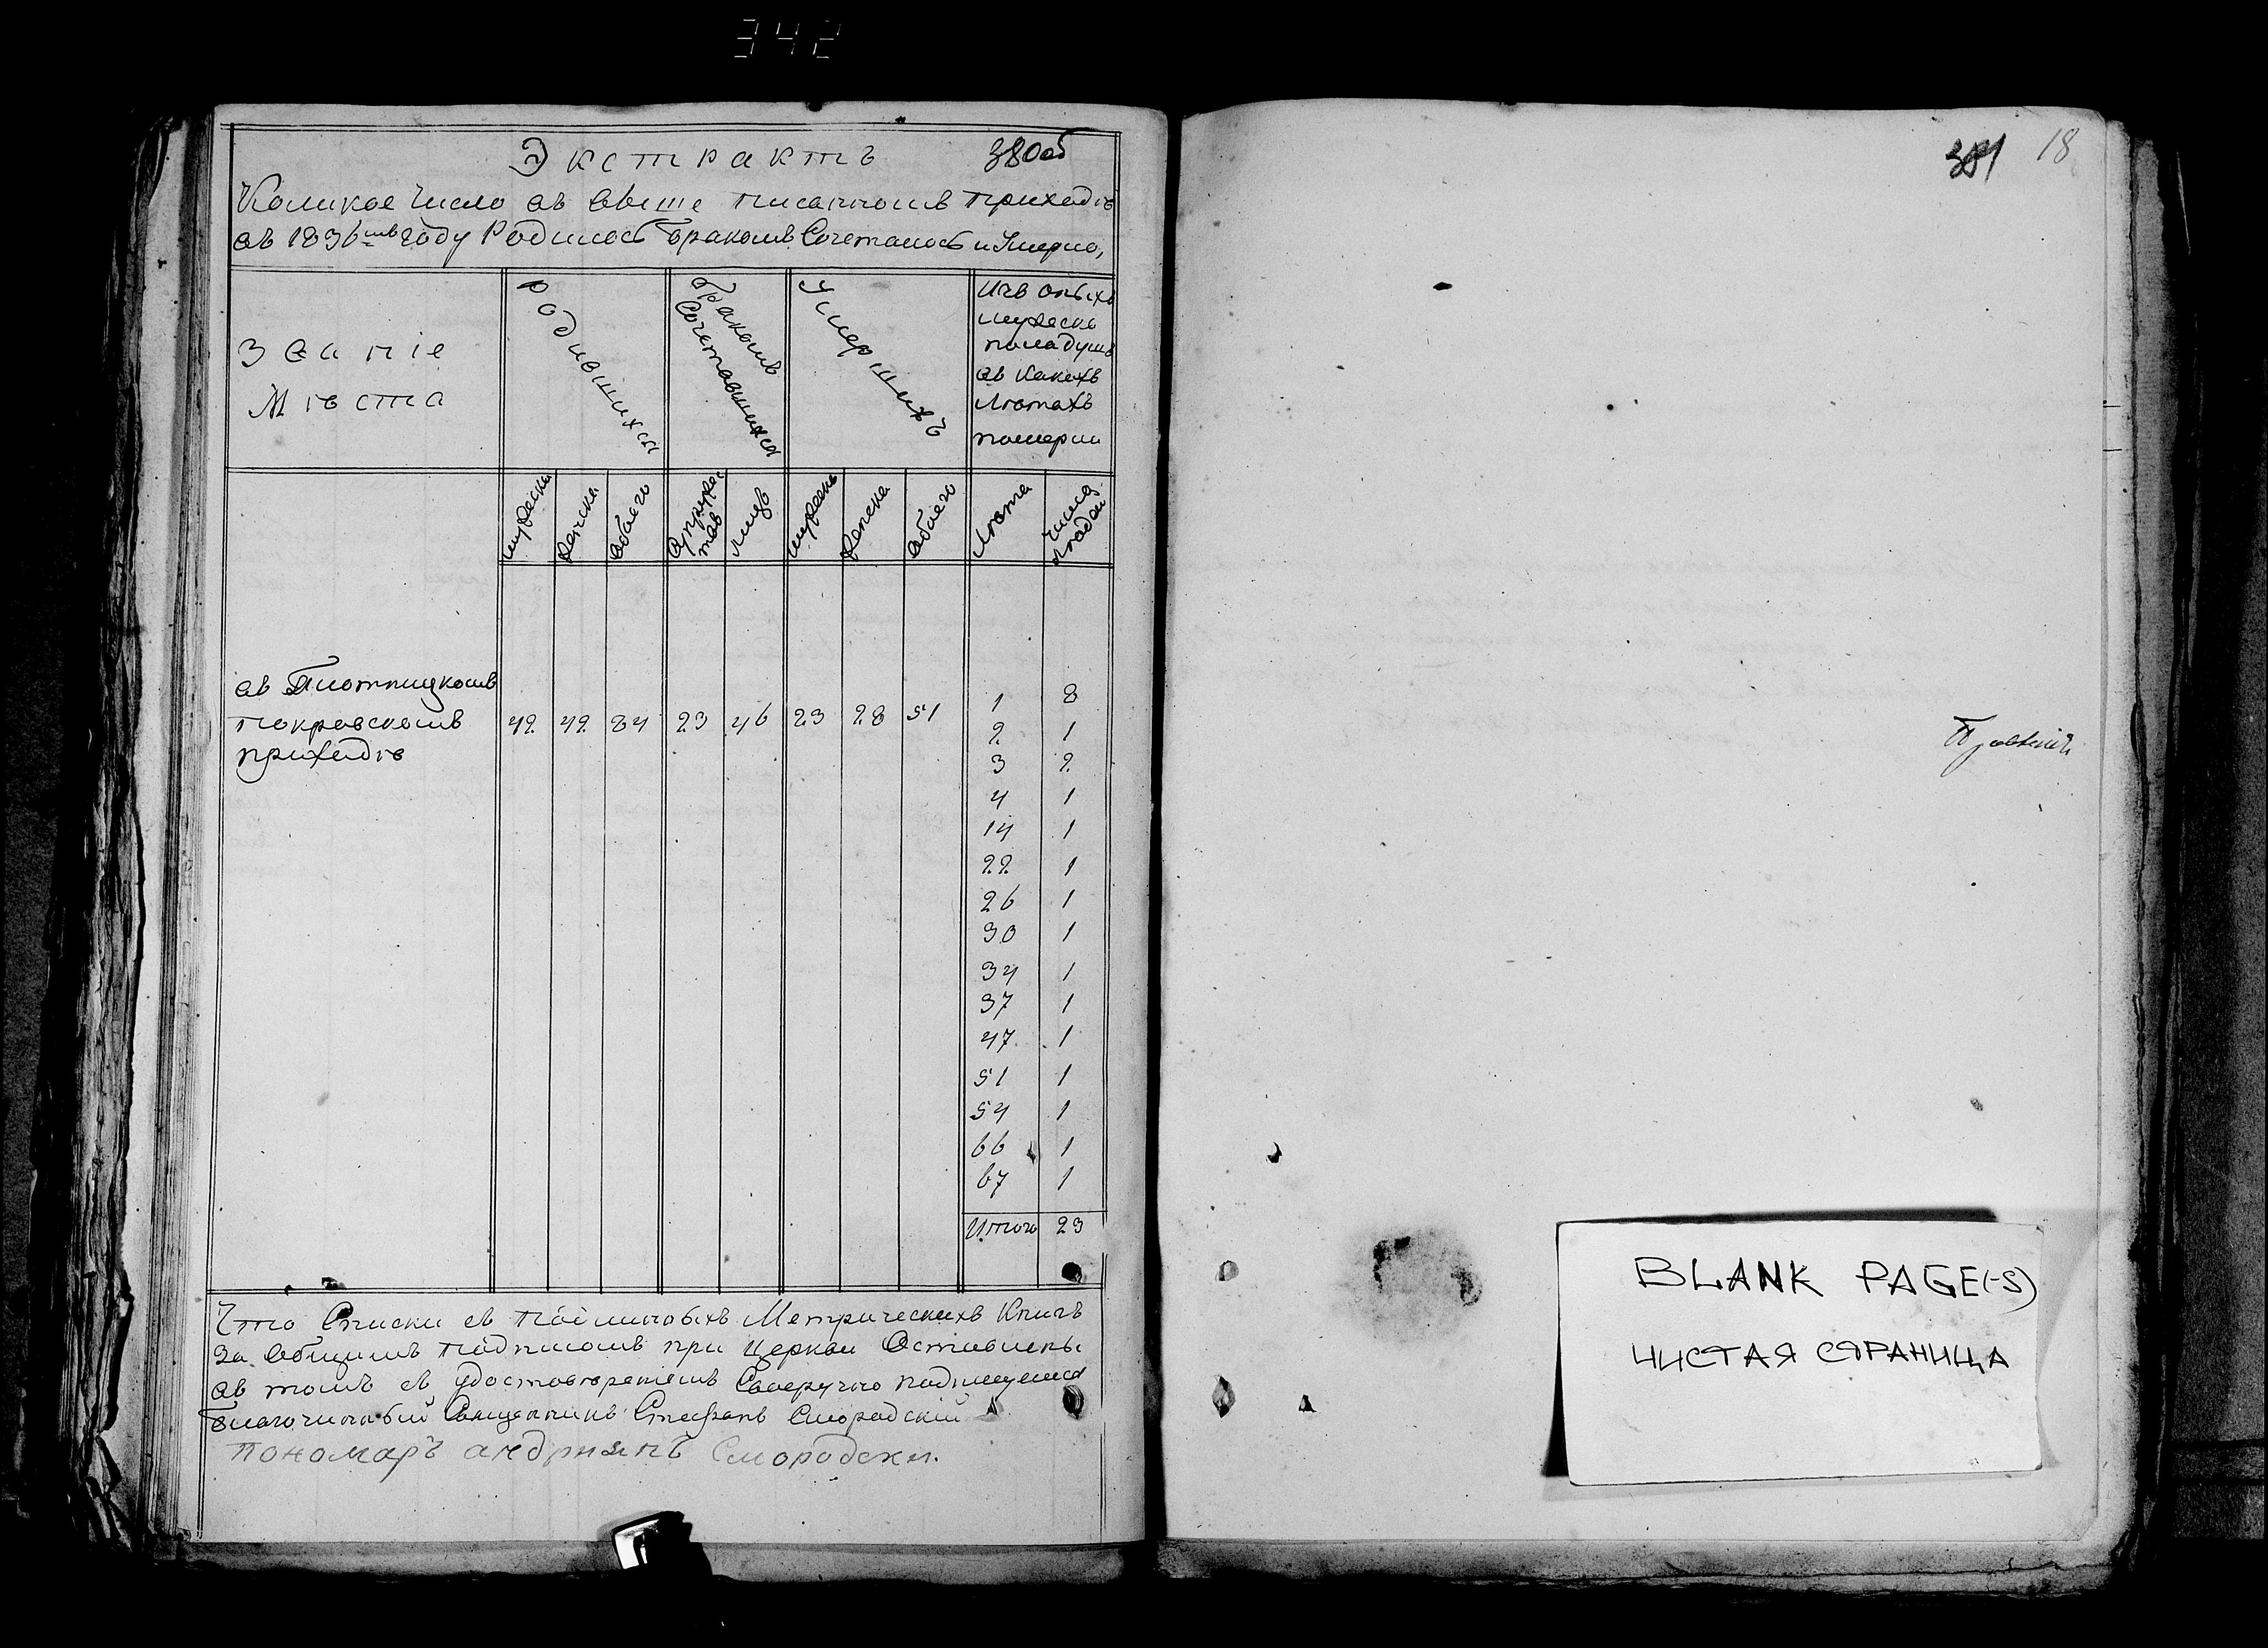 342
Экстрактъ
380об
Коликое число въ выше писанномъ приходѣ
въ 1836мъ году Родилось Бракомъ Сочеталось и Умерло,
Званіе
Мѣста
Родившихся
Бракомъ
Сочетавшихся
Умершихъ
Изъ оныхъ
мужеска
пола душъ
въ какихъ
лѣтахъ
померли
мужеска
женска
обоего
супружес
твъ
лицъ
мужеска
женска
обоего
Лѣта
Число
людей
въ Плотницкомъ
Покровскомъ
приходѣ
42 42 84 23 46 23 28 51
1 8
2 1
3 2
4 1
14 1
22 1
26 1
30 1
34 1
37 1
47 1
51 1
54 1
66 1
67 1
Итого 23
Что Списки съ подлинныхъ Метрическихъ Книгъ
за общимъ подписомъ при церкви Оставлены
въ томъ съ удостовѣреніемъ Своеручно подпишемся
Благочинный Священникъ Стефанъ Смородскій
Пономаръ андриянъ Смородски.
381
18
BLANK PAGE(-S)
ЧИСТАЯ СТРАНИЦА